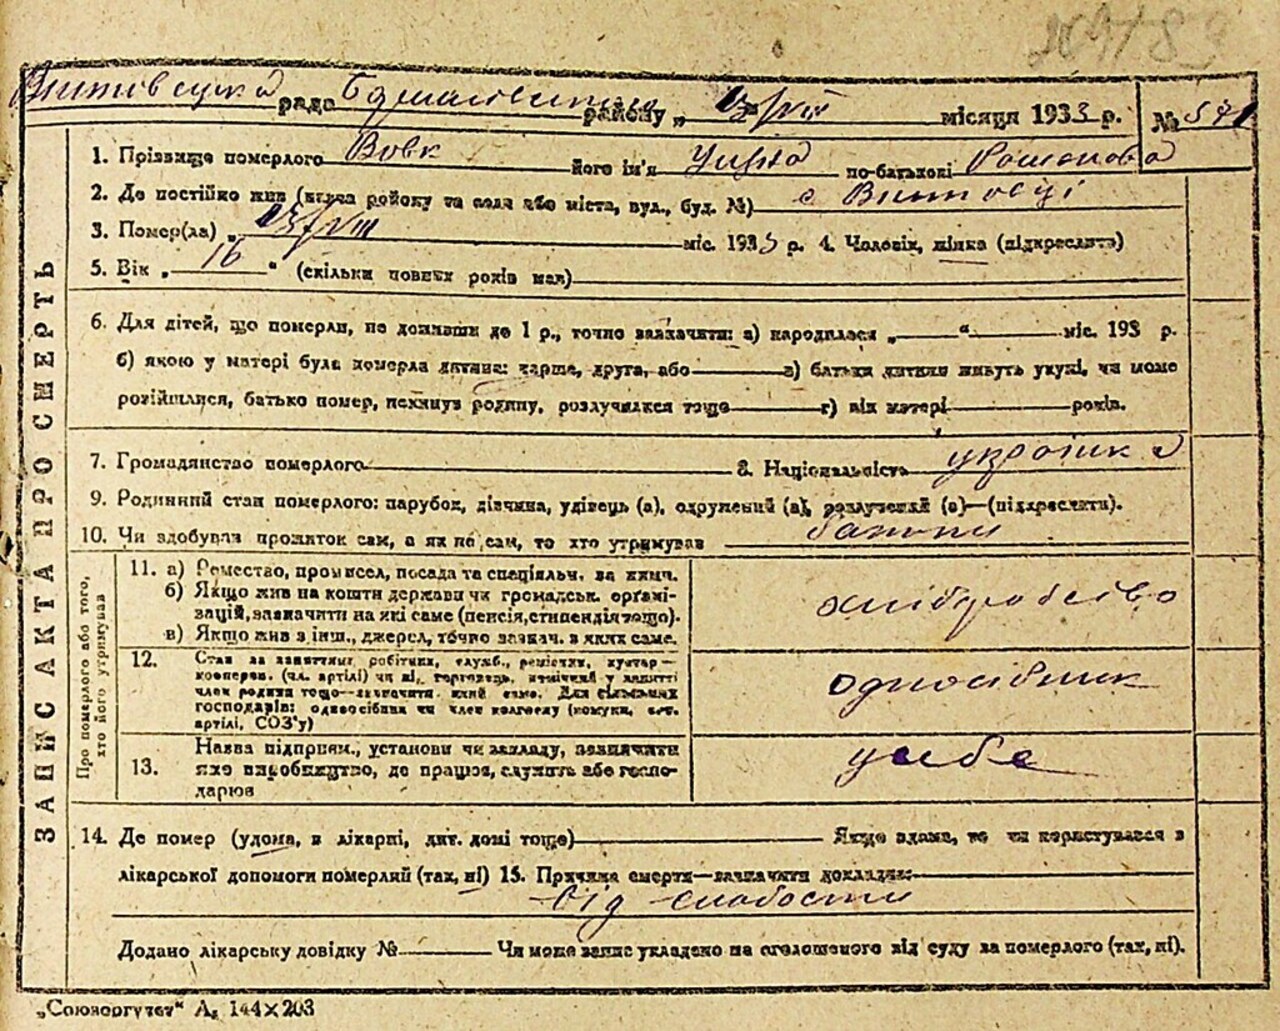 рада району „ 13/VIII місяця 1933 р. №
1. Прізвище померлого Вовк його ім'я по-батькові Романова
2. Де постійно жив (назва району та села або міста, вул., буд. №) с Витовці
3. Помер(ла) „ 13/VIII міс. 1933 р. 4. Чоловік, жінка (підкреслить)
5. Вік „ 16 “ (скільки повних років мав)
6. Для дітей, що померли, не доживши до 1 р., точно зазначити: а) народилася „ “ міс. 193 р.
б) якою у матері була померла дитина: перша, друга, або в) батьки дитини живуть укупі, чи може
розійшлися, батько помер, покинув родину, розлучилися тощо г) вік матері років.
7. Громадянство померлого 8. Національність українка
9. Родинний стан померлого: парубок, дівчина, удівець (а), одружений (а), розлучений (а)—(підкреслить).
10. Чи здобував прожиток сам, а як не сам, то хто утримував батьки
ЗАПИС АКТА ПРО СМЕРТЬ
Про померлого або того, хто його утримував
11. а) Ремество, промисел, посада та спеціяльн. за якич.
б) Якщо жив на кошти держави чи громадськ. орґані-
зацій, зазначити на які саме (пенсія, стипендія тощо).
в) Якщо жив з інш., джерел, точно зазнач. з яких саме.
хліборобство
12. Стан за заняттям: робітник, служб., ремісник, кустар—
кооперов. (чл. артілі) чи ні, торговець,
член родини тощо—зазначити який саме. Для сільських
господарів: одноосібник чи член колгоспу (комуни, с.-г.
артілі, СОЗ'у)
одноосібник
13. Назва підприєм., установи чи закладу, зазначити
яке виробництво, де працює, служить або госпо-
дарює
у себе
14. Де помер (удома, в лікарні, дит. домі тоще) Якщо вдома, то чи користувався з
лікарської допомоги померлий (так, ні) 15. Причина смерти—зазначити докладно:
від слабости
Додано лікарську довідку № Чи може запис укладено на оголошеного від суду за померлого (так, ні).
„Союзоргучет“ А₅ 144×203